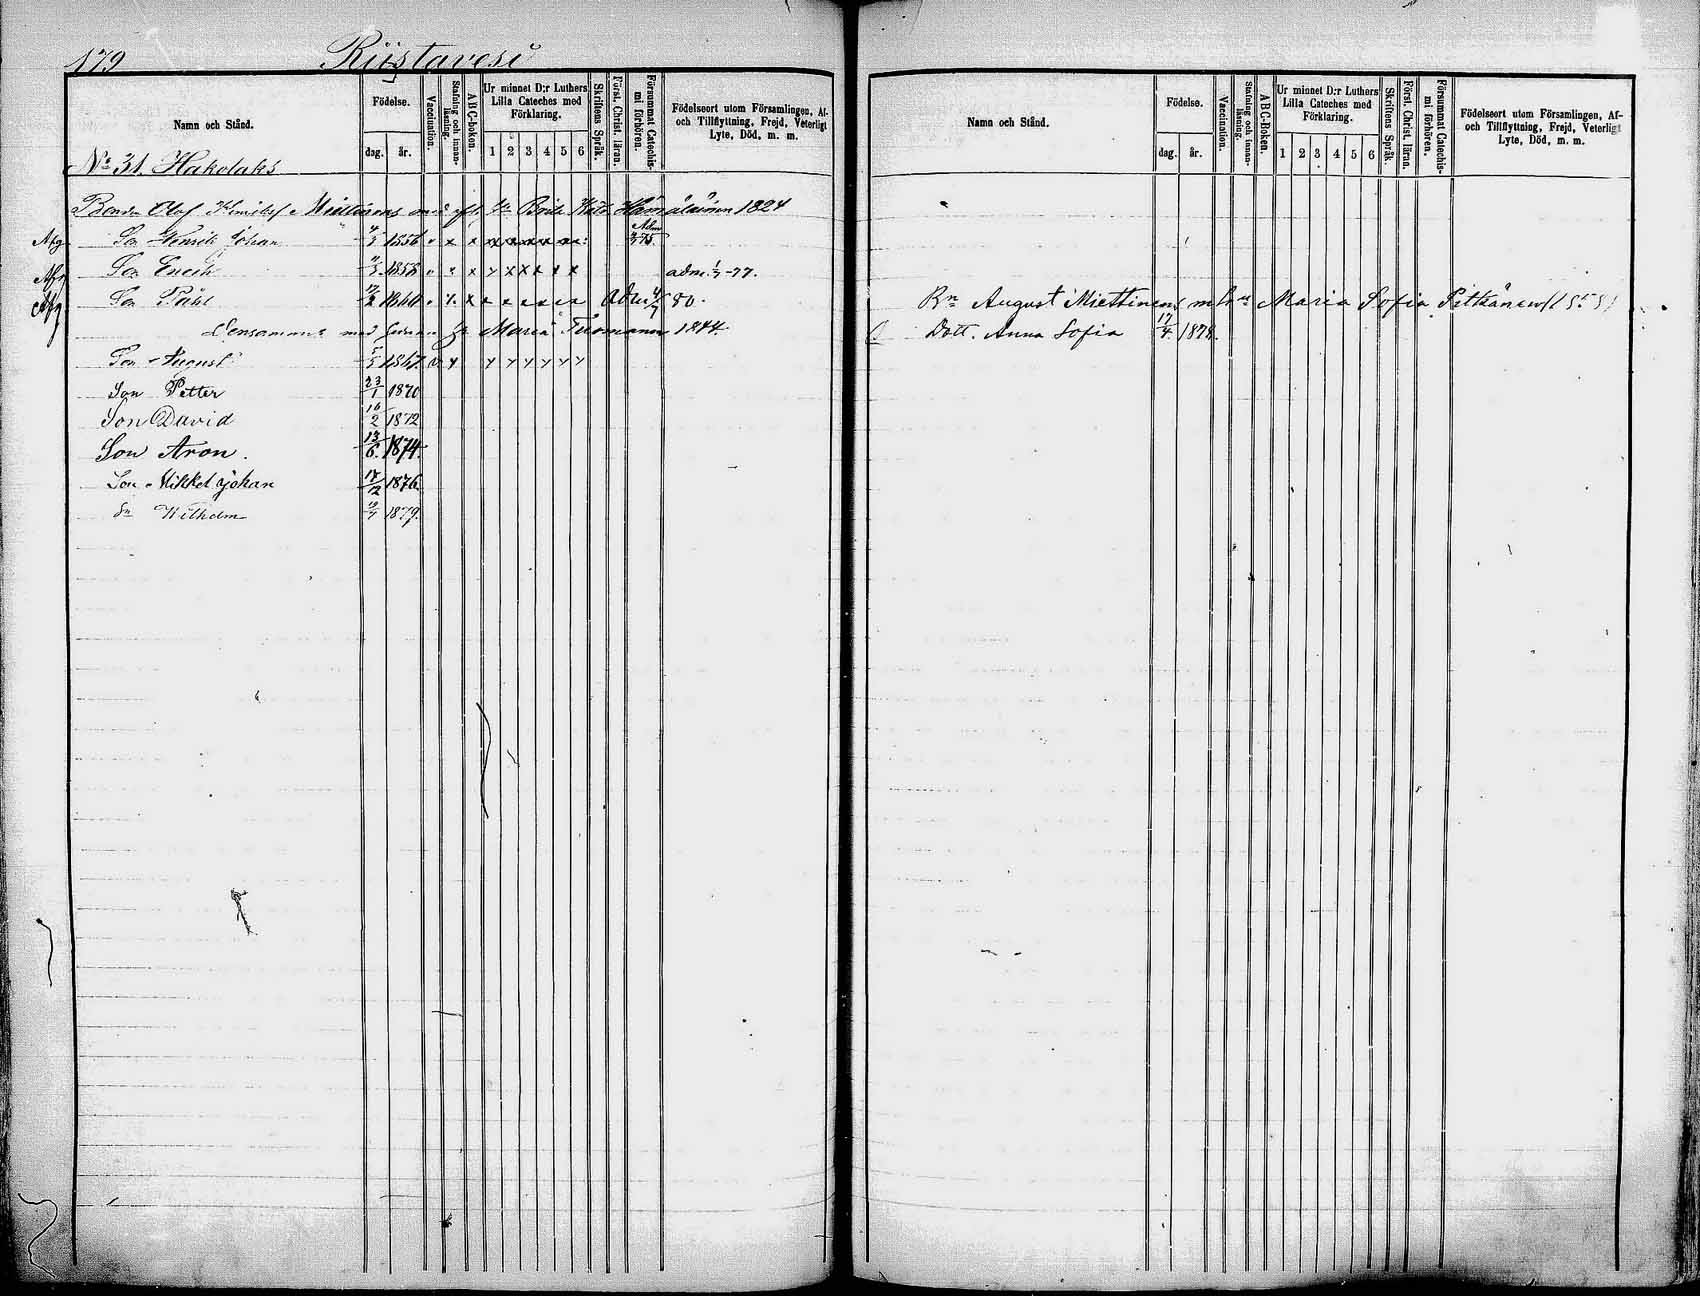 179 Riistavesi
Namn och Stånd.
Födelse.
dag. år.
Vaccination.
Stafning och innanläsning.
A B C-boken.
Ur minnet D:r Luthers Lilla Cateches med Förklaring.
1 2 3 4 5 6
Skriftens Språk.
Först. Christ. läran.
Försummat Catechismi förhören.
Födelseort utom Församlingen, Af- och Tillflyttning, Frejd, Veterligt Lyte, Död, m. m.
No 31 Hakolaks
Bonden Olof Miettinens Brita Hämäläinen 1824
Afg Son Henrik Johan 4/3 1856 v x x x x x x x x Adm 75
Afg Son Enoch 1858 v x x x x x x x x adm. 1/7 -77.
Afg Son Påhl 1860 x x x x x x x Adm 4/7 80.
med Maria Tuomanen 1844.
Son August 1867 v x x x x x x x
Son Petter 23/1 1870
Son David 16/2 1872
Son Aron. 13/6. 1874.
Son Mikkel Johan 17/12 1876
Sn Wilhelm 1879.
Namn och Stånd.
Födelse.
dag. år.
Vaccination.
Stafning och innanläsning.
A B C-Boken.
Ur minnet D:r Luthers Lilla Cateches med Förklaring.
1 2 3 4 5 6
Skriftens Språk.
Först. Christ. läran.
Försummat Catechismi förhören.
Födelseort utom Församlingen, Af- och Tillflyttning, Frejd, Veterligt Lyte, Död, m. m.
Bn August Miettinens Maria Sofia Pitkänen
Dott. Anna Sofia 17/4. 1878.